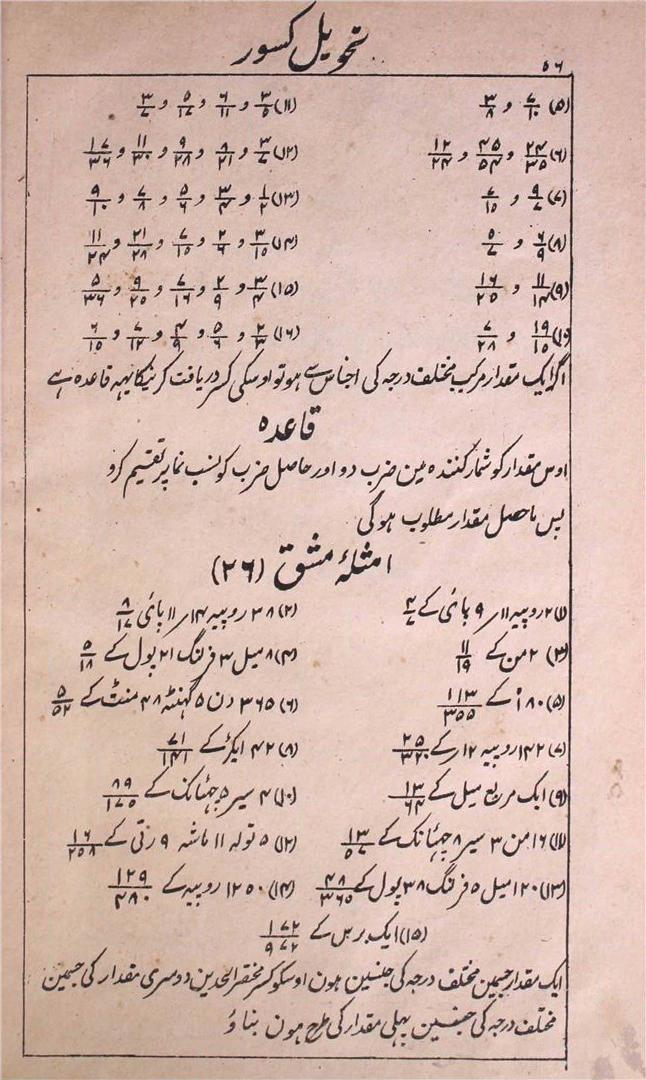 ۵۶
تحویل کسور
(۵) ۷/۱۰ و ۳/۸ (۱۱) ۳/۵ و ۶/۱۱ و ۵/۱۷ و ۳/۷
(۶) ۲۴/۳۵ و ۴۵/۵۴ و ۱۲/۲۴ (۱۲) ۳/۷ و ۸/۲۱ و ۹/۲۸ و ۱۱/۳۰ و ۱۷/۳۶
(۷) ۹/۷ و ۷/۱۵ (۱۳) ۱/۲ و ۳/۴ و ۵/۶ و ۷/۸ و ۹/۱۰
(۸) ۶/۹ و ۵/۷ (۱۴) ۳/۱۵ و ۲/۶ و ۷/۱۵ و ۲۱/۲۸ و ۱۱/۲۴
(۹) ۱۱/۱۴ و ۱۶/۲۵ (۱۵) ۳/۴ و ۲/۹ و ۷/۱۶ و ۹/۲۵ و ۵/۳۶
(۱۰) ۱۹/۱۵ و ۷/۲۸ (۱۶) ۲/۳ و ۵/۶ و ۴/۹ و ۷/۱۲ و ۶/۱۵
اگر ایک مقدار مرکب مختلف درجہ کی اجناس سے ہو تو اوسکی کسر دریافت کرنیکا یہہ قاعدہ ہے
قاعدہ
اوس مقدار کو شمار کنندہ مین ضرب دو اور حاصل ضرب کو نسب نما پر تقسیم کرو
پس ماحصل مقدار مطلوب ہوگی
امثلۂ مشق (۲۶)
(۱) ۲ روپیہ ۱۱؍ ۹ پائی کے ۴/۷ (۲) ۳۸ روپیہ ۱۴؍ ۱۱ پائی ۸/۱۷
(۳) ۲ من کے ۱۱/۱۹ (۴) ۸ میل ۳ فرلنگ ۲۱ پول کے ۵/۱۸
(۵) ۱۸۰ کے ۱۱۳/۳۵۵ (۶) ۳۶۵ دن ۵ گہنٹہ ۴۸ منٹ کے ۵/۵۲
(۷) ۱۴۲ روپیہ ۱۲؍ کے ۲۵/۳۲۰ (۸) ۴۲ ایکڑ کے ۷۱/۱۴۱
(۹) ایک مربع میل کے ۱۳/۶۴ (۱۰) ۴ سیر ۵ چہٹانک کے ۸۹/۱۷۵
(۱۱) ۱۶ من ۳ سیر ۸ چہٹانک کے ۱۳/۵۷ (۱۲) ۵ تولہ ۱۱ ماشہ ۹ رتی کے ۱۶/۲۵۸
(۱۳) ۱۲۰ میل ۵ فرلنگ ۳۸ پول کے ۴۸/۳۶۵ (۱۴) ۱۲۵۰ روپیہ کے ۱۲۹/۴۸۰
(۱۵) ایک برس کے ۱۷۲/۹۷۲
ایک مقدار جسمین مختلف درجہ کی جنسین ہون اوسکو کسر مختصر الحدین دوسری مقدار کی جسمین
مختلف درجہ کی جنسین پہلی مقدار کی طرح ہون بناؤ